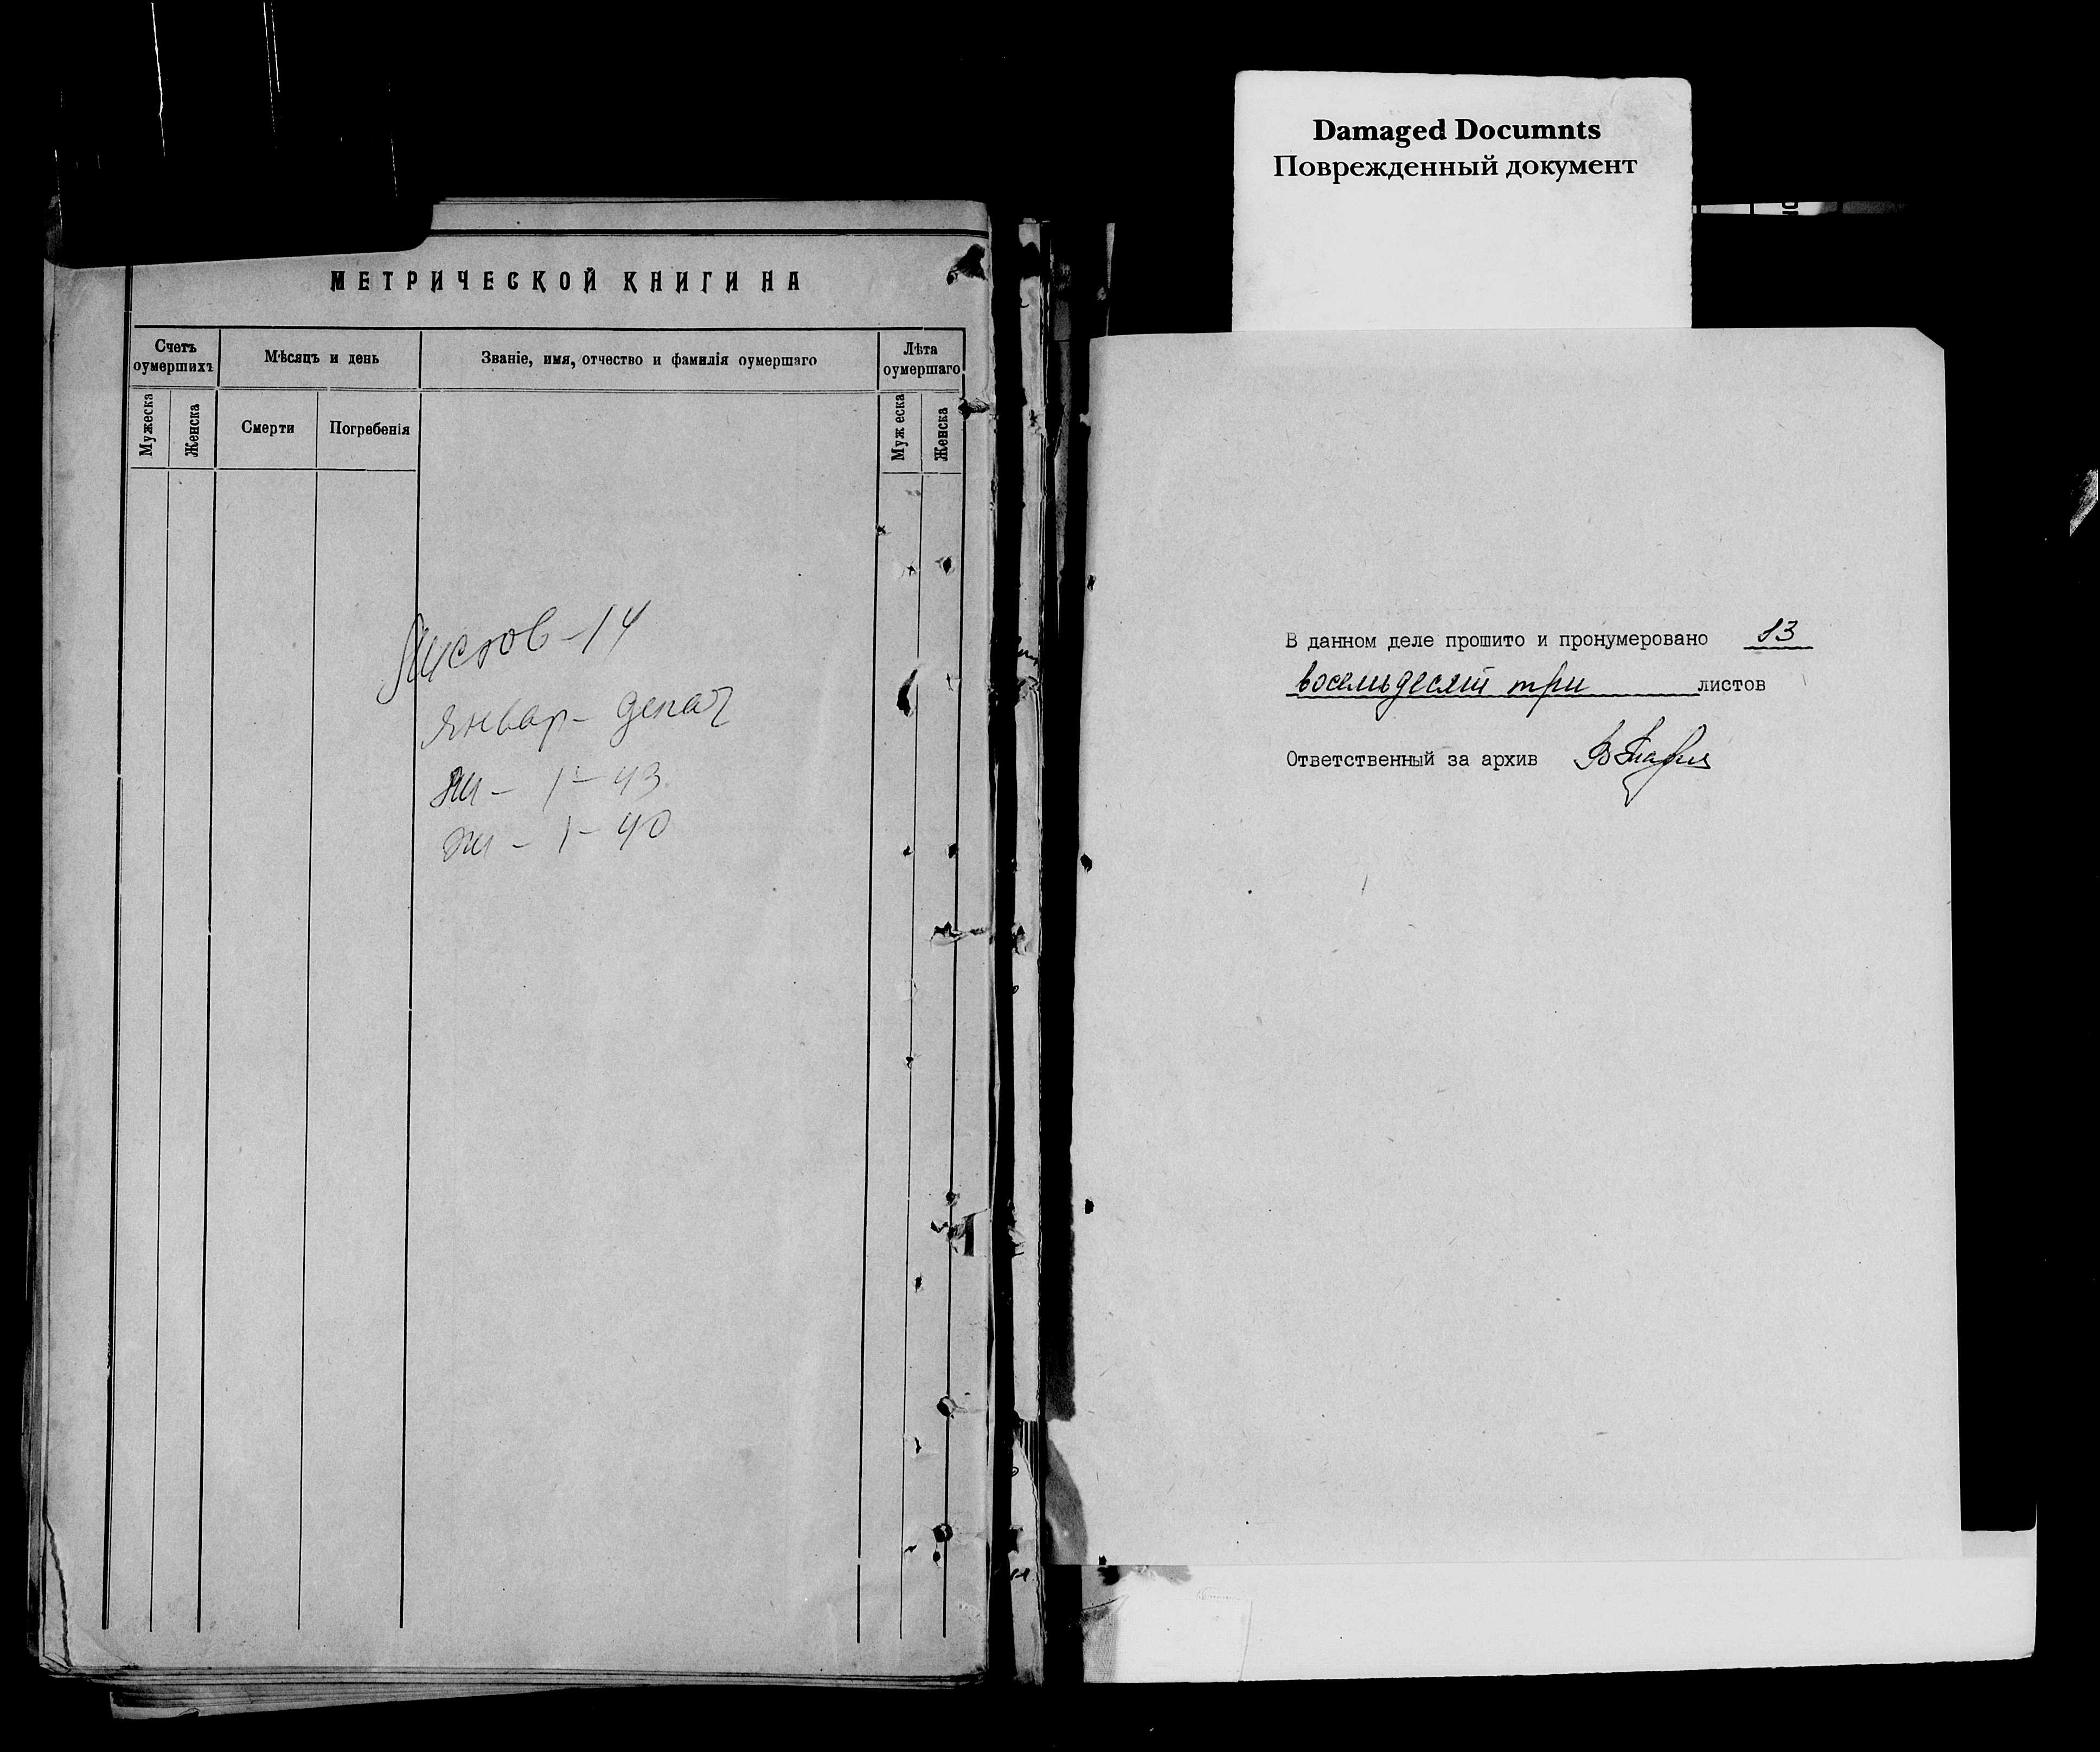 Damaged Documnts
Поврежденный документ
МЕТРИЧЕСКОЙ КНИГИ НА
Счетъ оумершихъ
Мѣсяцъ и день
Званіе, имя, отчество и фамилія оумершаго
Лѣта оумершаго
Мужеска
Женска
Смерти
Погребенія
Мужеска
Женска
Листов - 14
Январ -
1 - 43
1 - 40
В данном деле прошито и пронумеровано 83
восемьдесят три листов
Ответственный за архив